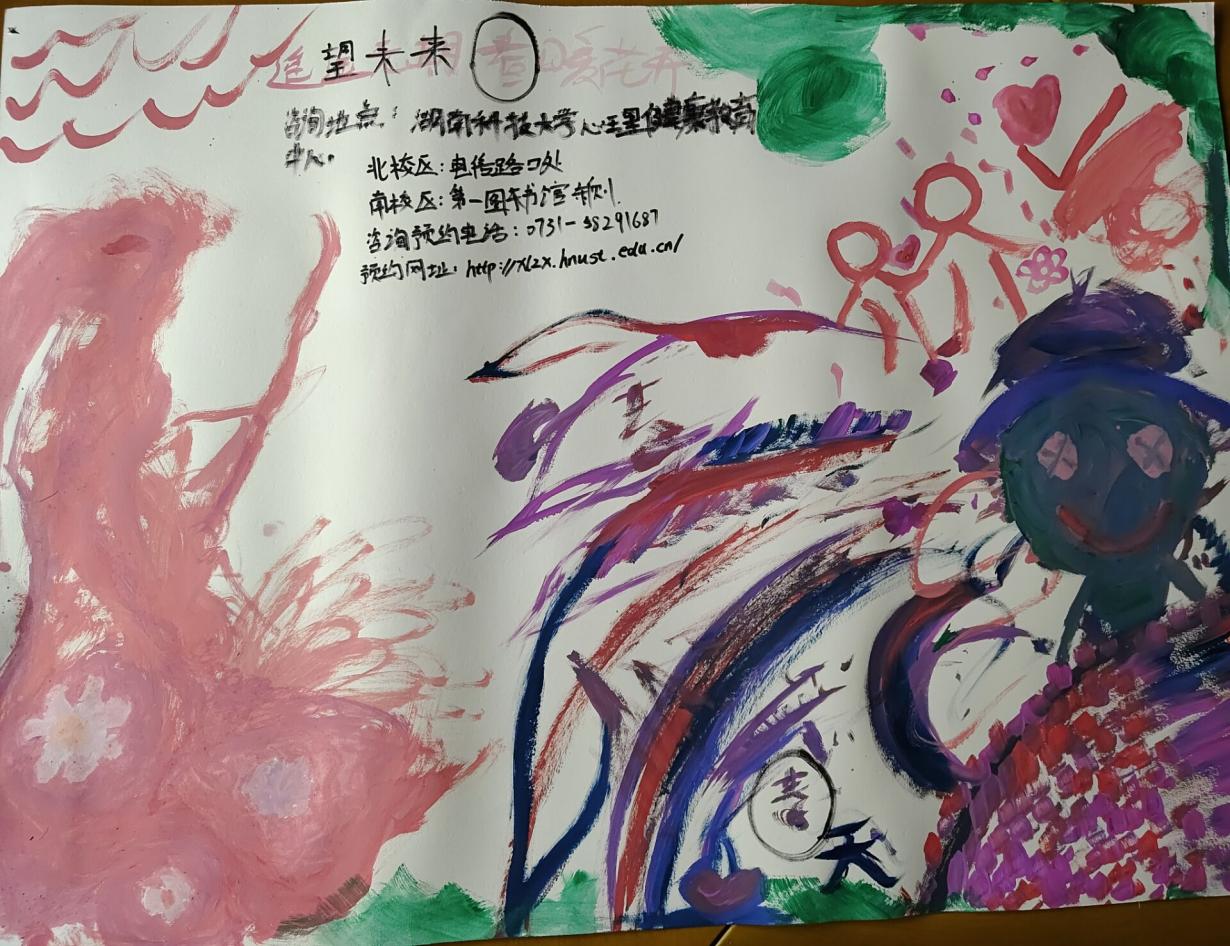 望未来 春暖花开
咨询地点：湖南科技大学心理健康教育
中心。
北校区：电信路口处
南校区：第一图书馆规划
咨询预约电话：0731-58291687
预约网址：http://xlzx.hnust.edu.cn/
天